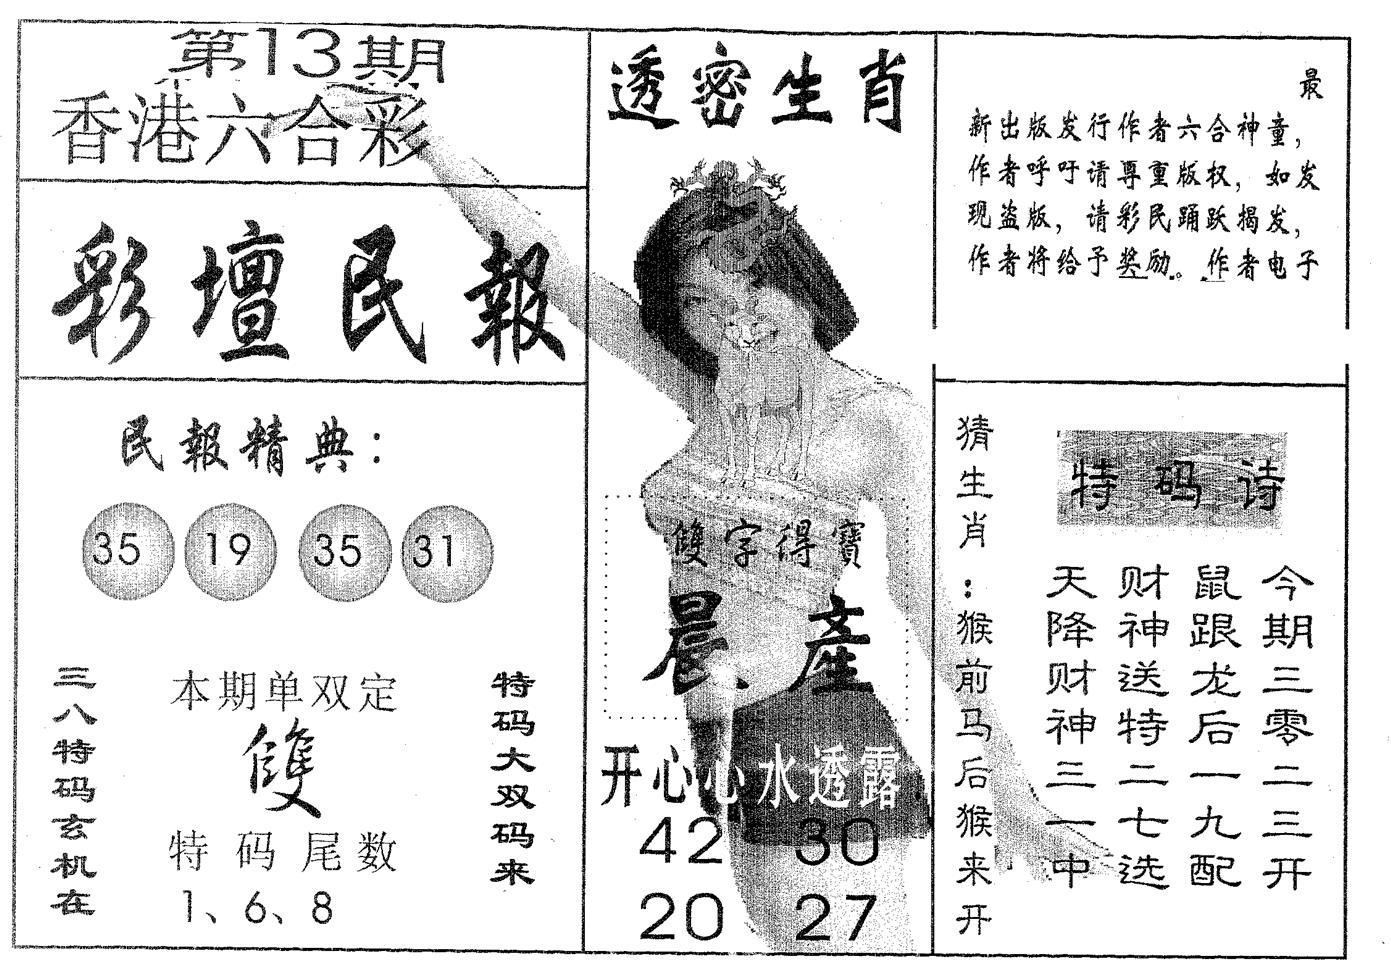 第13期
香港六合彩
彩壇民報
民報精典：
35 19 35 31
三八特码玄机在
本期单双定
雙
特码尾数
1、6、8
特码大双码来
透密生肖
雙字得寶
晨 產
开心心水透露
42 30
20 27
最
新出版发行作者六合神童，
作者呼吁请尊重版权，如发
现盗版，请彩民踊跃揭发，
作者将给予奖励。作者电子
猜生肖：猴前马后猴来开
特码诗
今期三零二三开
鼠跟龙后一九配
财神送特二七选
天降财神三一中